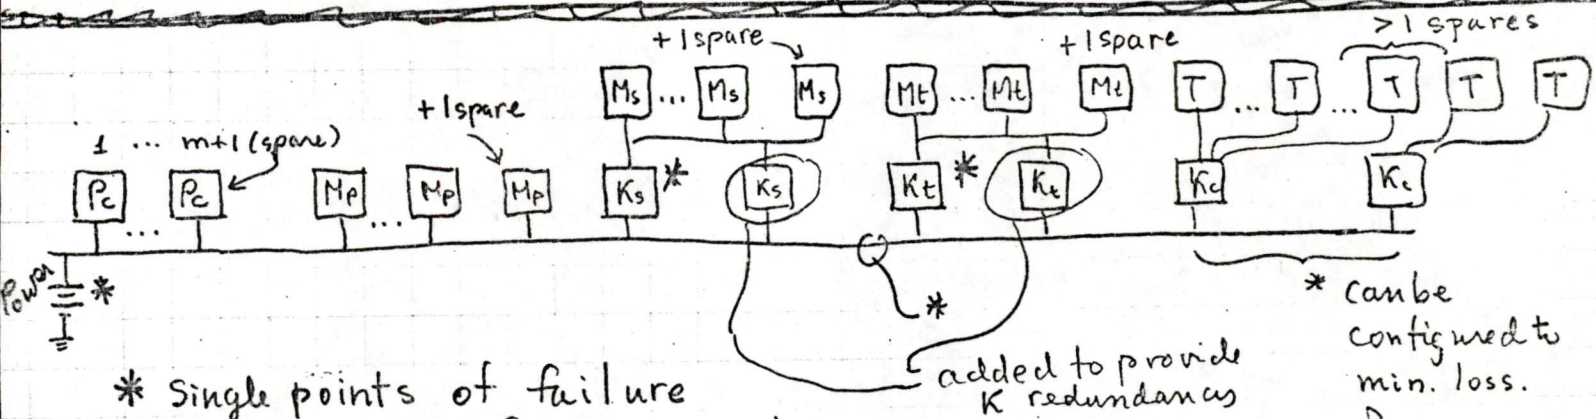 +1 spare
+1 spare
>1 spares
Ms ... Ms Ms Mt ... Mt Mt T ... T ... T T T
+1 spare
1 ... m+1 (spare)
Pc ... Pc Mp ... Mp Mp Ks * Ks Kt * Kt Kc Kc
Power *
*
* can be
configured to
min. loss.
added to provide
K redundancy
* Single points of failure